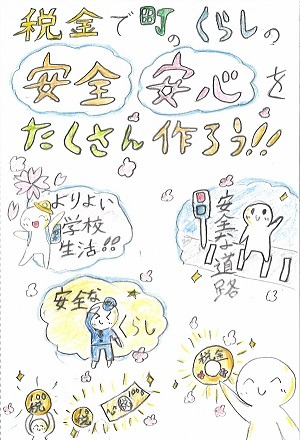 税金で町のくらしの
安全 安心を
たくさん作ろう!!
よりよい
学校
生活!!
安全な道路
安全な
くらし
税金
100
税
税